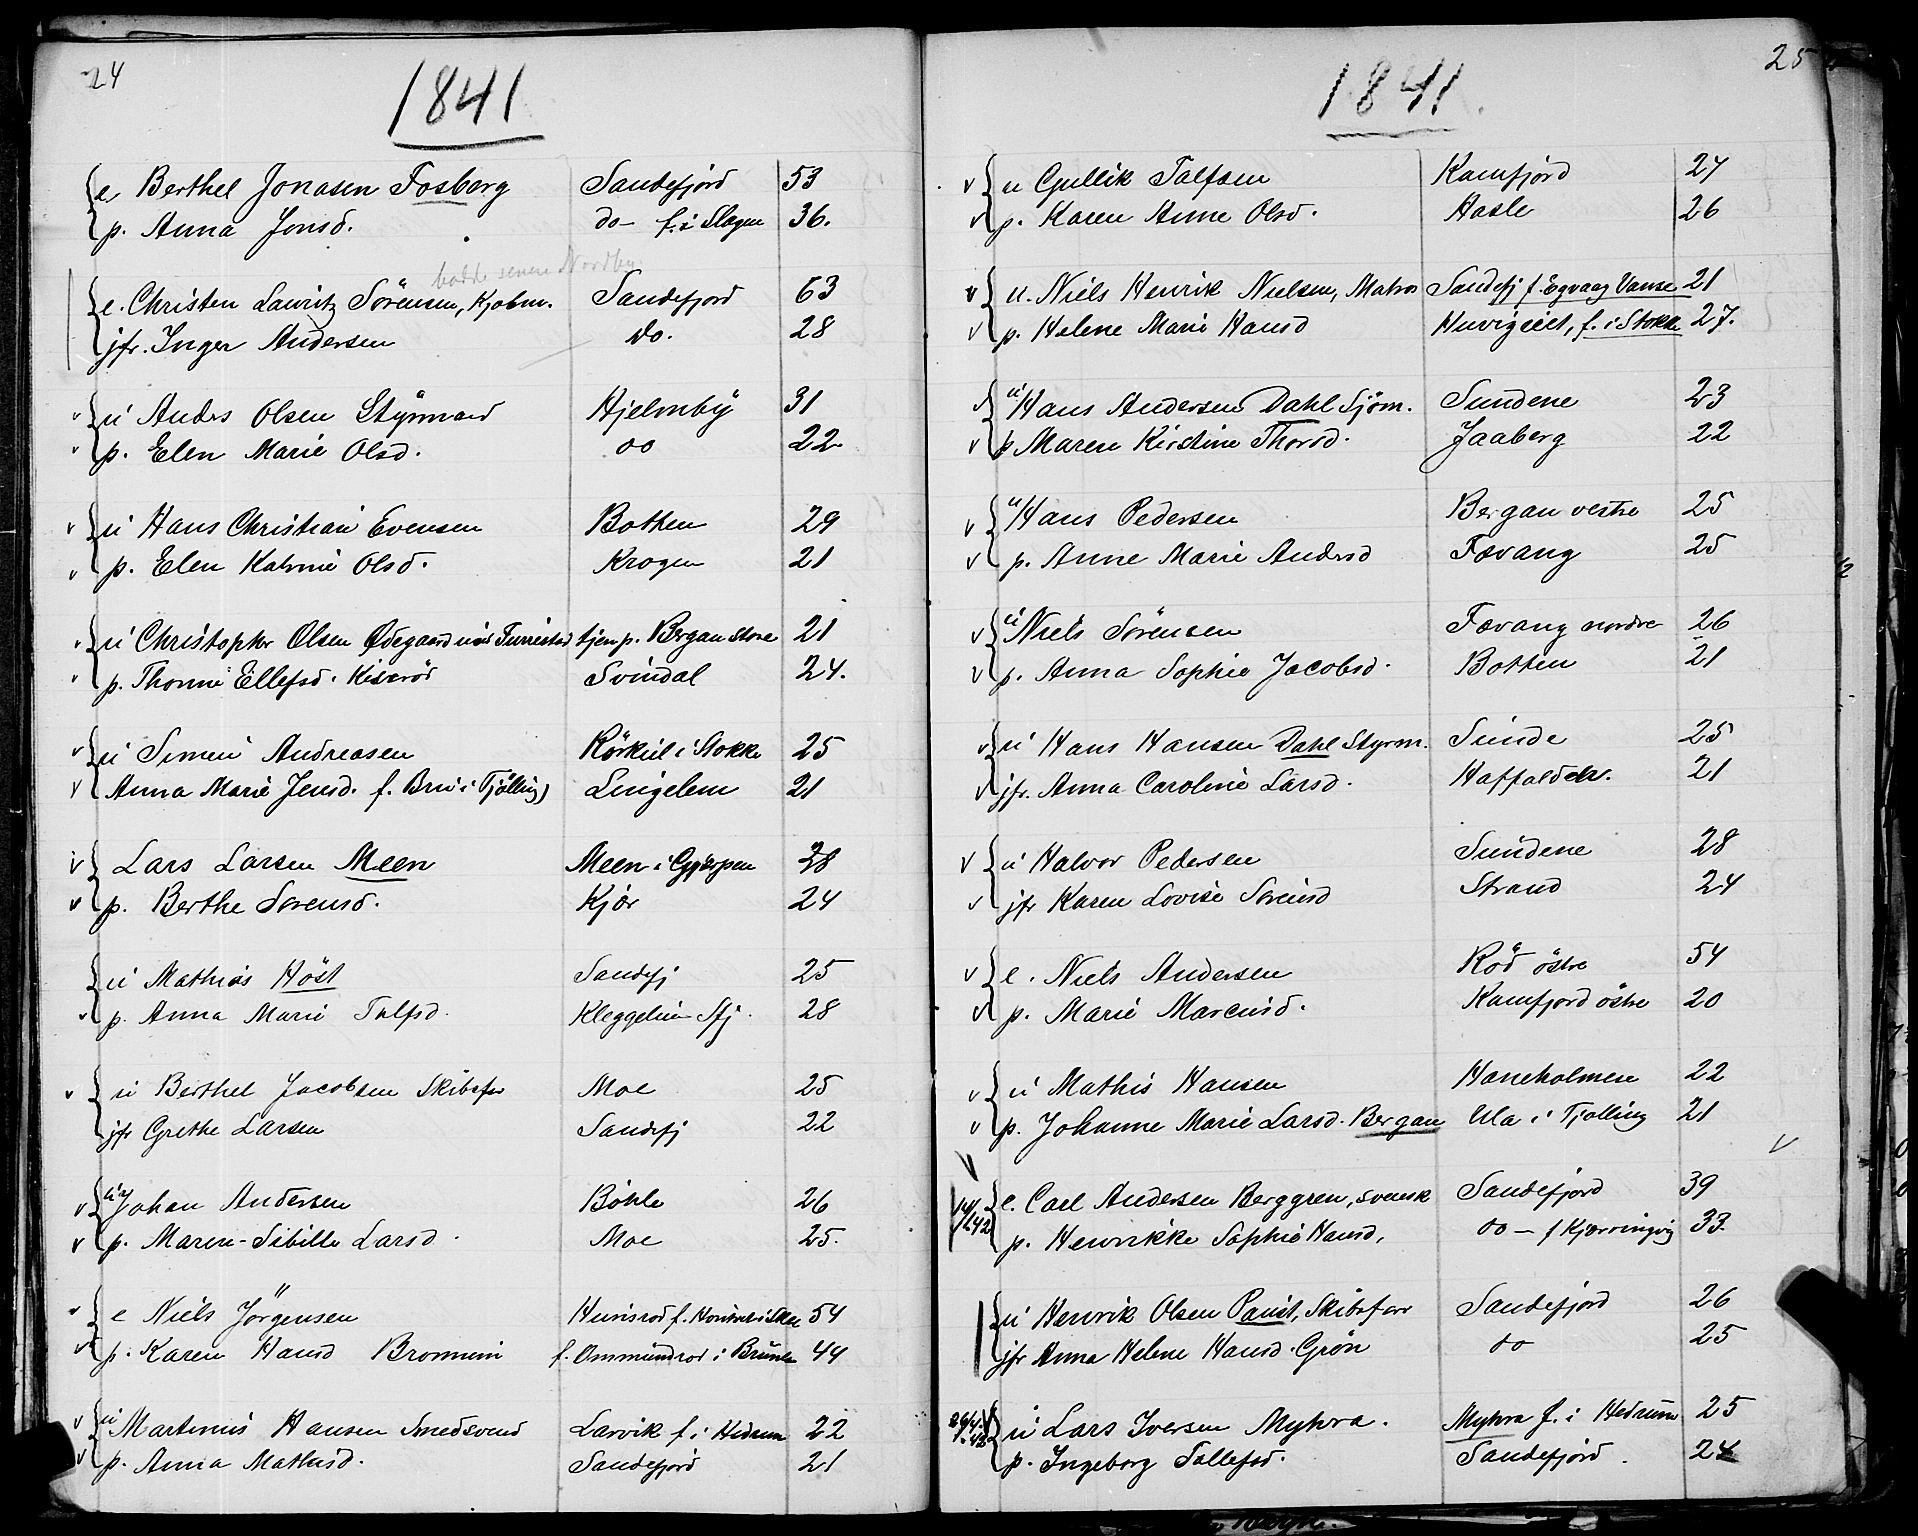 24
1841
e Berthel Jonasen Fosberg Sandefjord 53
p. Anna Jonsd. do- f. i Slagen 36.
bodde senere Nordby
e. Christen Lauritz Sörensen, Kjøbm. Sandefjord 63
jfr. Inger Andersen Do. 28
u Anders Olsen Styrmand Hjelmby 31
p. Elen Marie Olsd. do 22
u Hans Christian Evensen Bothen 29
p. Elen Katrine Olsd. Krogen 21
u Christopher Olsen Ødegaard Furrestad tjen p. Bergan store 21
p. Thorine Ellefsd. Kiserör Svindal 24.
u Simen Andreasen Körkül i Stokke 25
Anna Marie Jensd. f. Bru i Tjölling) Lingelem 21
Lars Larsen Meen Meen i Gjerpen 28
p. Berthe Sorensd. Kjär 24
u Mathias Höst Sandefj 25
p. Anna Marie Tolfsd. Kleggelim Sfj. 28
u Berthel Jacobsen Skibsfør Moe 25
jfr Grethe Larsen Sandefj 22
u Johan Andersen Böhle 26
p. Maren-Sibille Larsd. Moe 25.
e Niels Jörgensen Hunsrod f. i Skee 54
p. Karen Hansd Bronnum f. Ommundrod i Brunla 44
u Martinus Hansen Smedsvend Larvik f. i Hedrum 22
p. Anna Mathisd. Sandefjord 21
25
1841.
u Gullik Tolfsen Kamfjord 27
p. Karen Anne Olsd. Hasle 26
u. Niels Henrik Nielsen, Matros Sandefj f. Egvaag Vanse 21
p. Helene Marie Hansd Huvigeiet, f. i Stokke 27.
u Hans Andersen Dahl Sjöm. Sundene 23
p Maren Kirstine Thorsd. Jaaberg 22
u Hans Pedersen Bergan vestre 25
p. Anne Marie Andersd Fævang 25
u Niels Sörensen Fævang nordre 26
p. Anna Sophie Jacobsd. Botten 21
u Hans Hansen Dahl Styrm. Sunde 25
jfr. Anna Caroline Larsd. Haffaldelv. 21
u Halvor Pedersen Sundene 28
jfr Karen Lovise Sörensd Strand 24
e. Niels Andersen Röd östre 54
p. Marie Marcusd. Kamfjord östre 20
u Mathis Hansen Haneholmen 22
p. Johanne Marie Larsd. Bergan Ula i Tjolling 21
14/1 42 e. Carl Andersen Berggren, svensk Sandefjord 39
p. Henrikke Sophie Hansd, do - f Kjærringvig 33
u Henrik Olsen Paust, Skibsfør Sandefjord 26
jfr Anna Helene Hansd. Grön do 25
26/4 42 u Lars Iversen Myhra. Myhra f. i Hedrum 25
p. Ingeborg Tollefsd. Sandefjord. 24